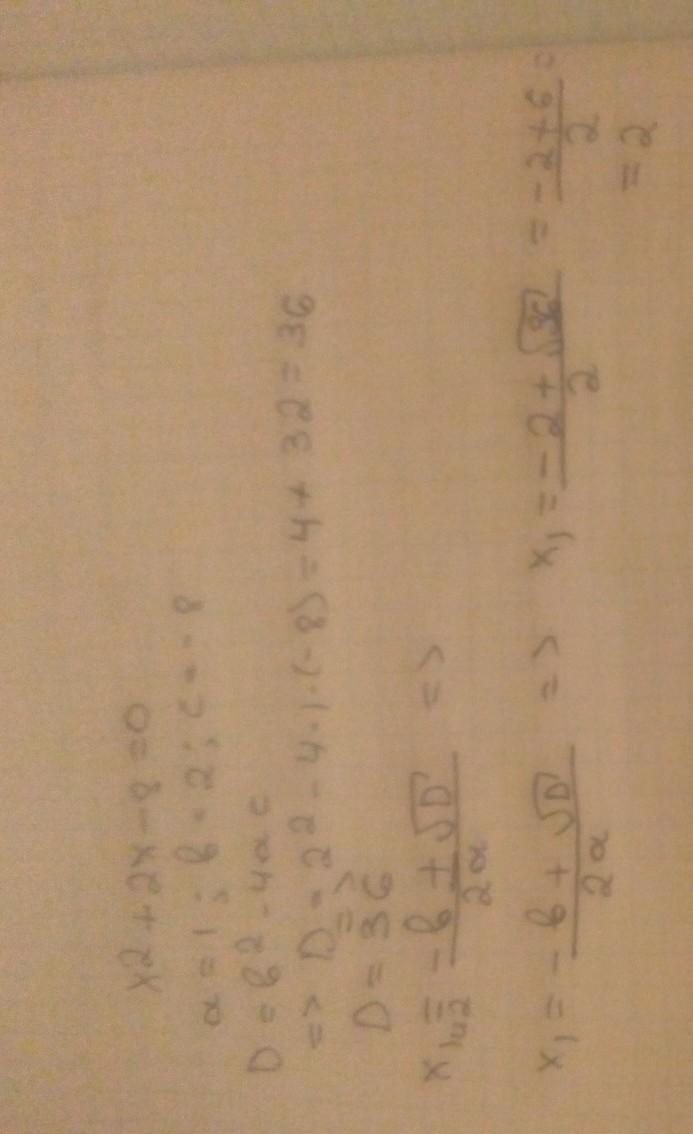 x² + 2x - 8 = 0
a = 1 ; b = 2 ; c = - 8
D = b² - 4ac
=> D = 2² - 4·1·(-8) = 4 + 32 = 36
=>
D = 36
x₁ᵤ₂ = -b ± √D / 2a =>
x₁ = -b + √D / 2a => x₁ = -2 + √36 / 2 = -2 + 6 / 2 =
= 2